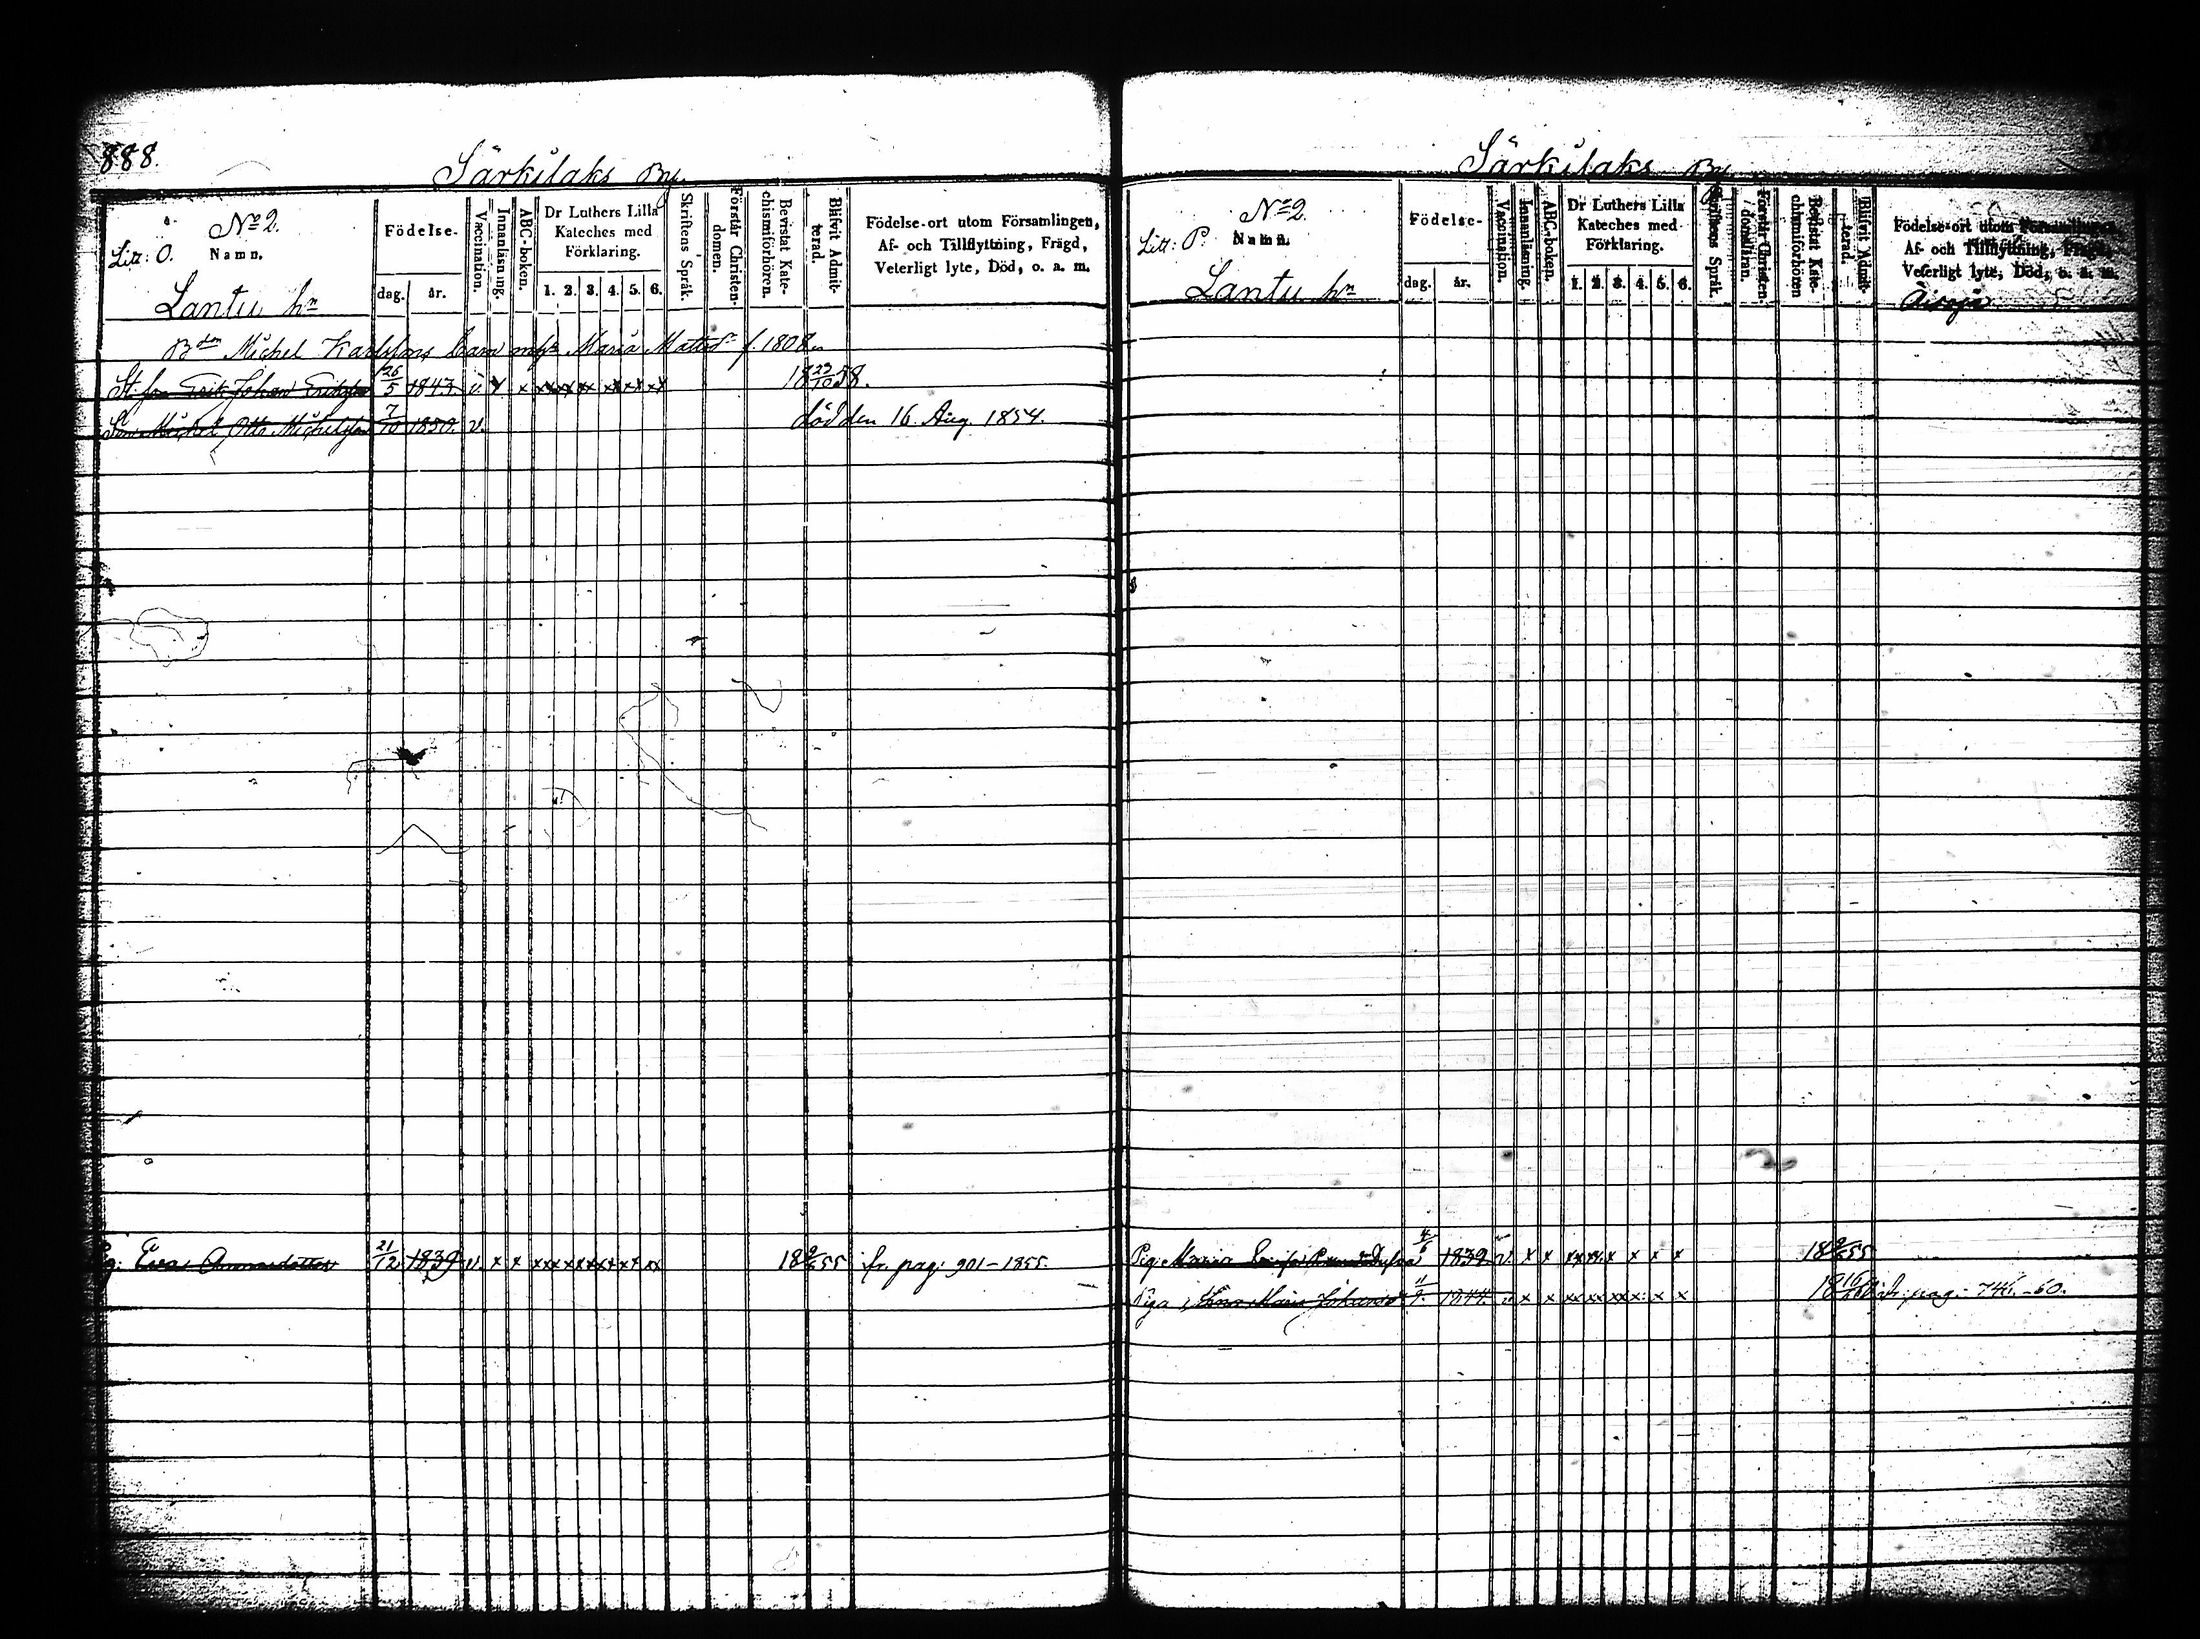 888.
Särkilaks By.
Litt: O. No 2.
Namn.
Lantu hn
Födelse-
dag. år.
Vaccination.
Innanläsning.
ABC-boken.
Dr Luthers Lilla
Kateches med
Förklaring.
1. 2. 3. 4. 5. 6.
Skriftens Språk.
Förstår Christen-
domen.
Bevistat Kate-
chismiförhören.
Blifvit Admit-
terad.
Födelse-ort utom Församlingen,
Af- och Tillflyttning, Frägd,
Veterligt lyte, Död, o. a. m.
Bdn Michel Karlssons barn m. Maria Mattsdr f. 1808.
St. son Erik Johan Eriksson 26/5 1843. v. x x xx xx xx xx xx xx 18 23/10 58.
Son Michel Otto Michelsson 7/10 1850. v. död den 16 Aug. 1854.
Eva Annasdotter 21/12 1839 v. x x xx xx xx xx xx xx 18 9/6 55 fr. pag: 901-1855.
Särkilaks By
Litt: P. No 2.
Namn.
Lantu hn
Födelse-
dag. år.
Vaccination.
Innanläsning.
ABC-boken.
Dr Luthers Lilla
Kateches med
Förklaring.
1. 2. 3. 4. 5. 6.
Skriftens Språk.
Förstår Christen-
domsläran.
Bevistat Kate-
chismiförhören
Blifvit Admit-
terad.
Födelse-ort utom Församlingen,
Af- och Tillflyttning, Frägd,
Veterligt lyte, Död, o. a. m.
Pig. Maria 4/6 1839. v. x x xx xx x x x x 18 9/6 55
Piga Lena Maria Johansdr 11/9. 1844. v x x xx xx xx x x x 18 16/ 60 fr. pag: 746.-60.